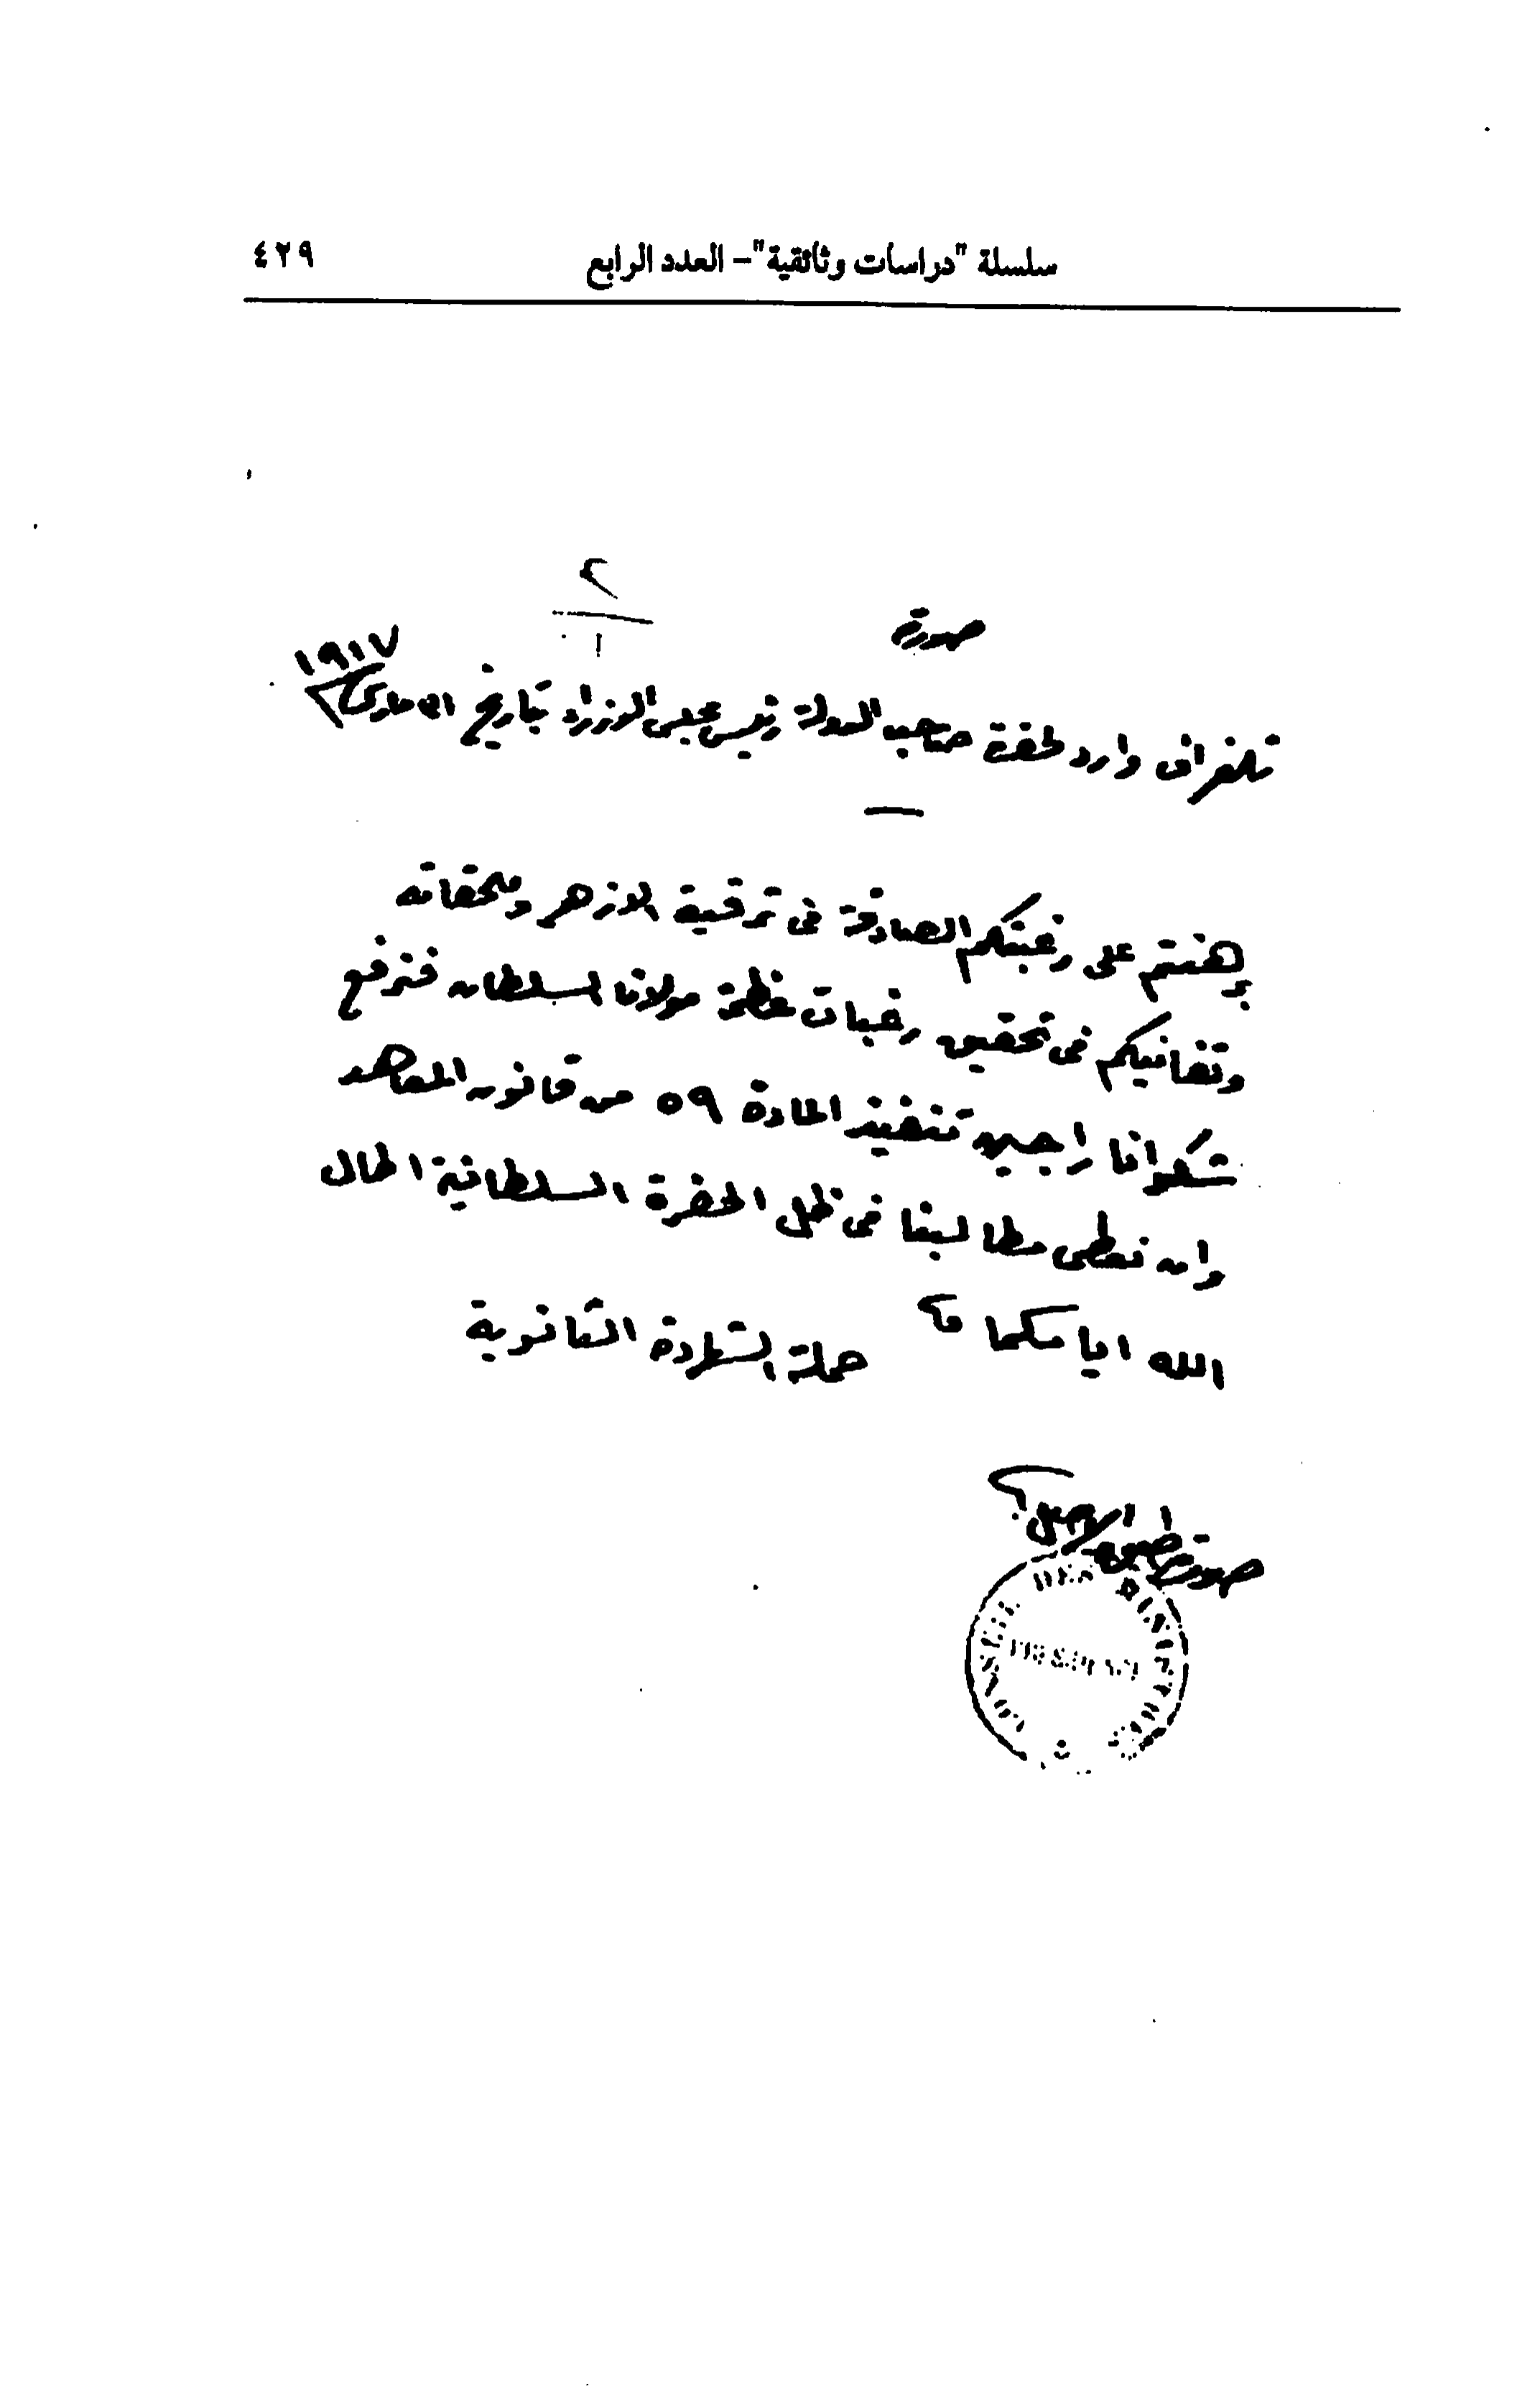 سلسلة "دراسات وثائقية" – العدد الرابع ٤٢٩
٢
١
صورة
تلغراف وارد لحضرة صاحب الدولة رئيس مجلس الوزراء بتاريخ مارس ١٩١٧
برهنتم على رغبتكم الصادقة فى ترقية الازهر وملحقاته
وتفانيكم فى تحقيق رغبات عظمة مولانا السلطان فنرفع
شكوانا راجين تنفيذ المادة ٥٩ من قانون المعاهد
وان نعطى مطالبنا فى ظل الحضرة السلطانية اطال
الله ايامكما
حملة الشهادة الثانوية
صورة طبق الاصل